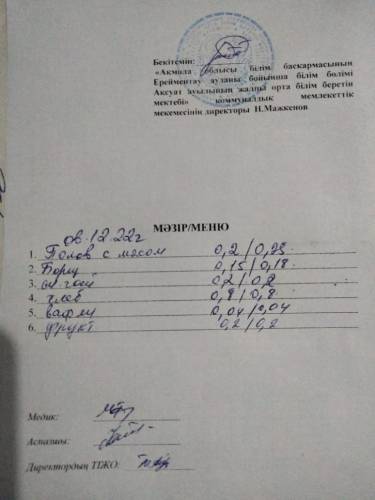 Бекітемін:
«Ақмола облысы білім басқармасының
Ерейментау ауданы бойынша білім бөлімі
Ақсуат ауылының жалпы орта білім беретін
мектебі» коммуналдық мемлекеттік
мекемесінің директоры Н.Мажкенов
МӘЗІР/МЕНЮ
12.22г
1. Полов с мясом 0,2/0,25
2. Борщ 0,15/0,18
3. чай 0,2/0,2
4. хлеб 0,8/0,8
5. вафли 0,04/0,04
6. фрукт 0,2/0,2
Медик:
Аспазшы:
Директордың ТІЖО: